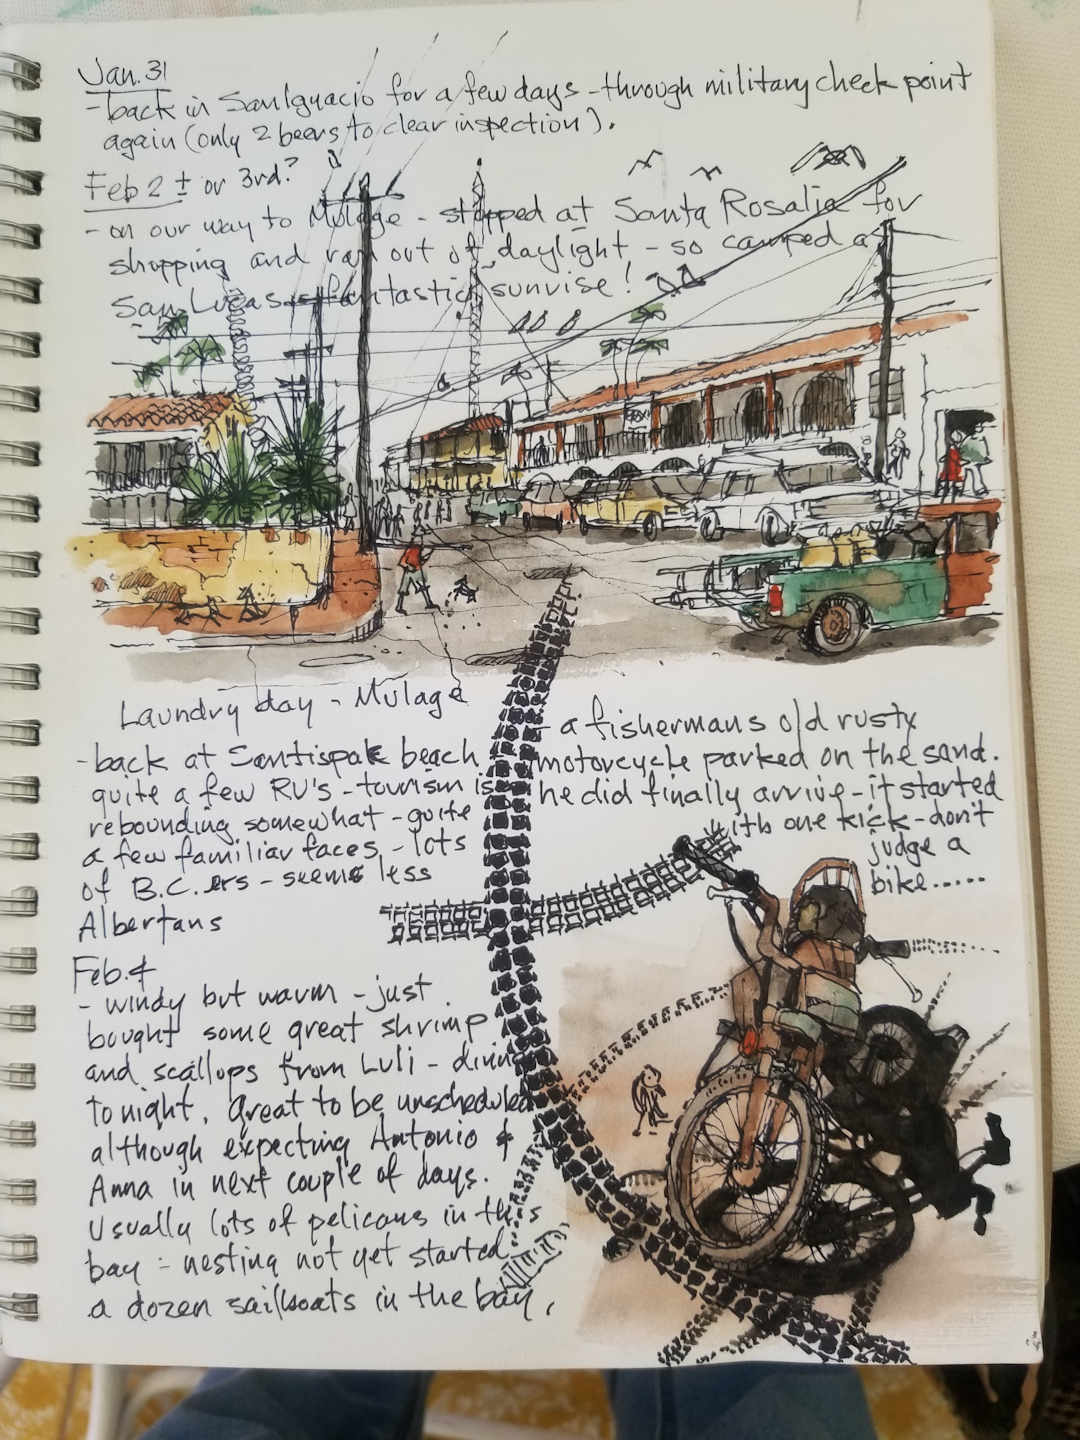 Jan. 31
- back in San Ignacio for a few days - through military check point
again (only 2 beers to clear inspection).
Feb 2 ± or 3rd?
- on our way to Mulage - stopped at Santa Rosalia for
shopping and ran out of daylight - so camped at
San Lucas - fantastic sunrise!
Laundry day - Mulage
- back at Santispak beach -
quite a few RV's - tourism is
rebounding somewhat - quite
a few familiar faces - lots
of B.C.ers - seems less
Albertans
- a fishermans old rusty
motorcycle parked on the sand.
he did finally arrive - it started
with one kick - don't
judge a
bike.....
Feb. 4
- windy but warm - just
bought some great shrimp
and scallops from Luli - dining
tonight. Great to be unscheduled
although expecting Antonio &
Anna in next couple of days.
Usually lots of pelicans in this
bay - nesting not yet started.
a dozen sailboats in the bay.